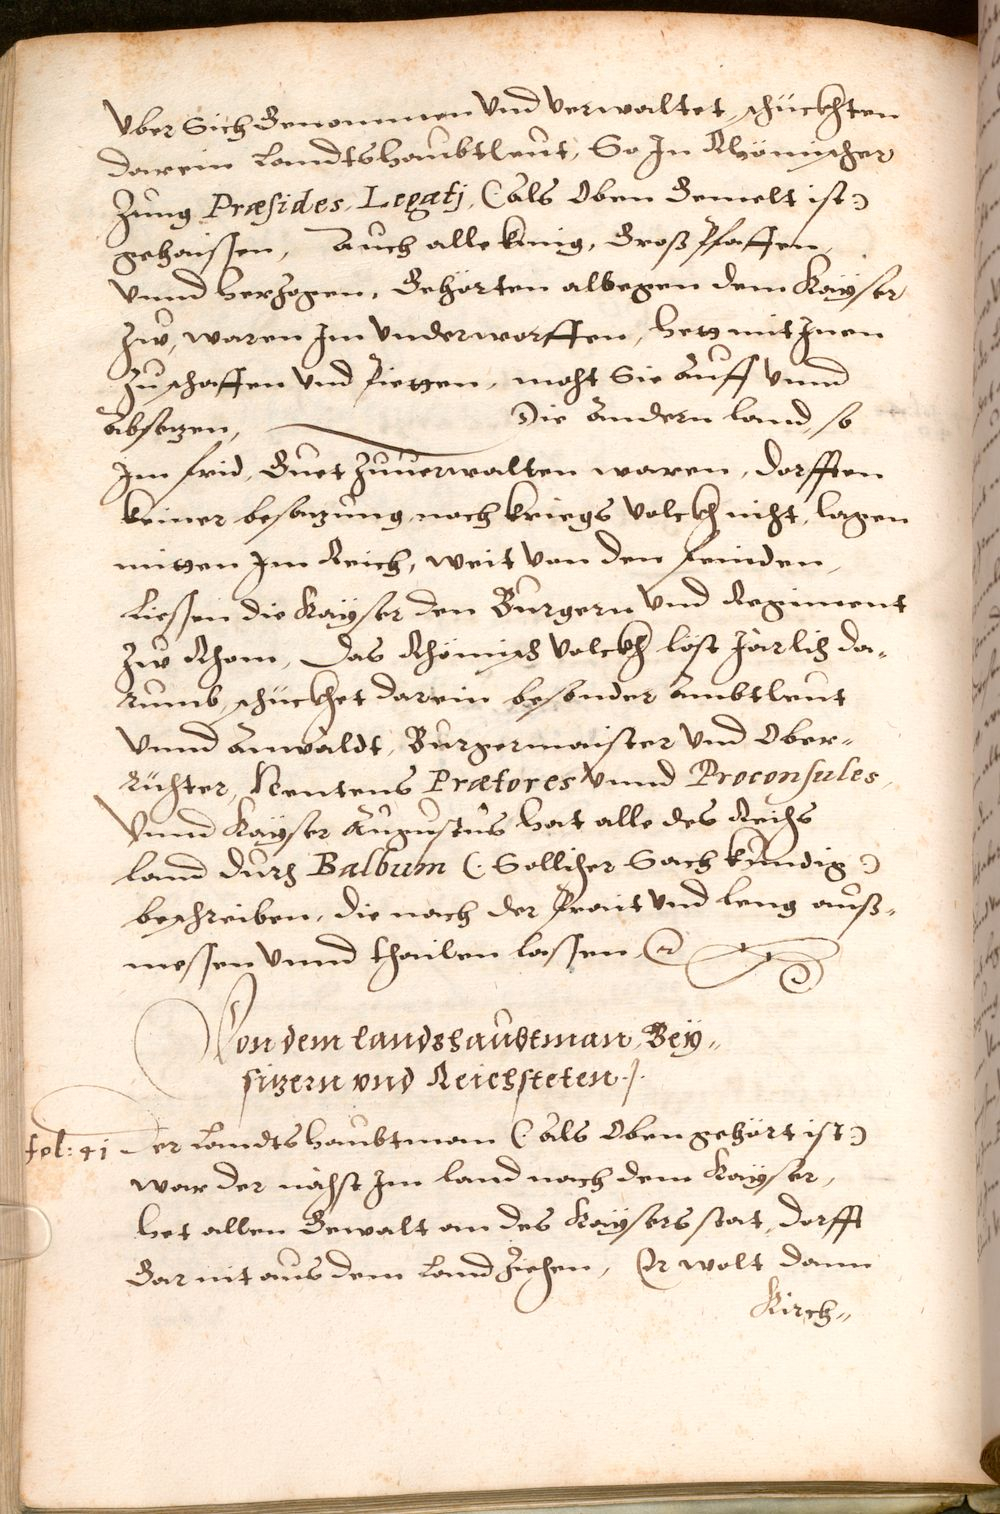 Vber Sich Genommen vnd verwaltet, schückhten
darein Landtshaubtleut, So In Rhömischer
Zung Præsides, Legatj, (: als Oben Gemelt ist :)
gehaissen, Auch alle künig, Groß Pfaffen,
vnnd herzogen, Gehörten alwegen dem Kayser
Zue, waren Im vnderworffen, hett mit Inen
Zuschaffen vnd Pietten, moht Sie auff vnnd
absetzen, Die andern land, so
Im frid, Guet Zuuerwalten waren, dorfften
keiner besatzung, noch kriegs volckh niht, lagen
mitten Im Reich, weit von den feinden,
Liessen die Kayser den Burgern vnd Regiment
Zue Rhom, Das Rhömisch volckh löst Järlich da-
rumb, schückhet darein besonder Ambtleut
vnnd anwäldt, Burgermaister vnd Ober-
Richter, Nentens Prætores vnnd Proconsules,
Vnnd Kayser Augustus hat alle des Reichs
land durch Balbum (: Sollicher Sach kundig :)
beschreiben, die nach der Prait vnd leng auß-
messen vnnd thailen lassen
Von dem landshaubtman, Bey-
sitzern vnd Reichsteten ./.
fol: 41 Der Landtshaubtman (: als Oben gehört ist :)
war der nähst Im land nach dem Kayser,
het allen Gewalt an des Kaysers stat, dorfft
Gar nit aus dem Land Ziehen, Er wolt dann
Kirch-